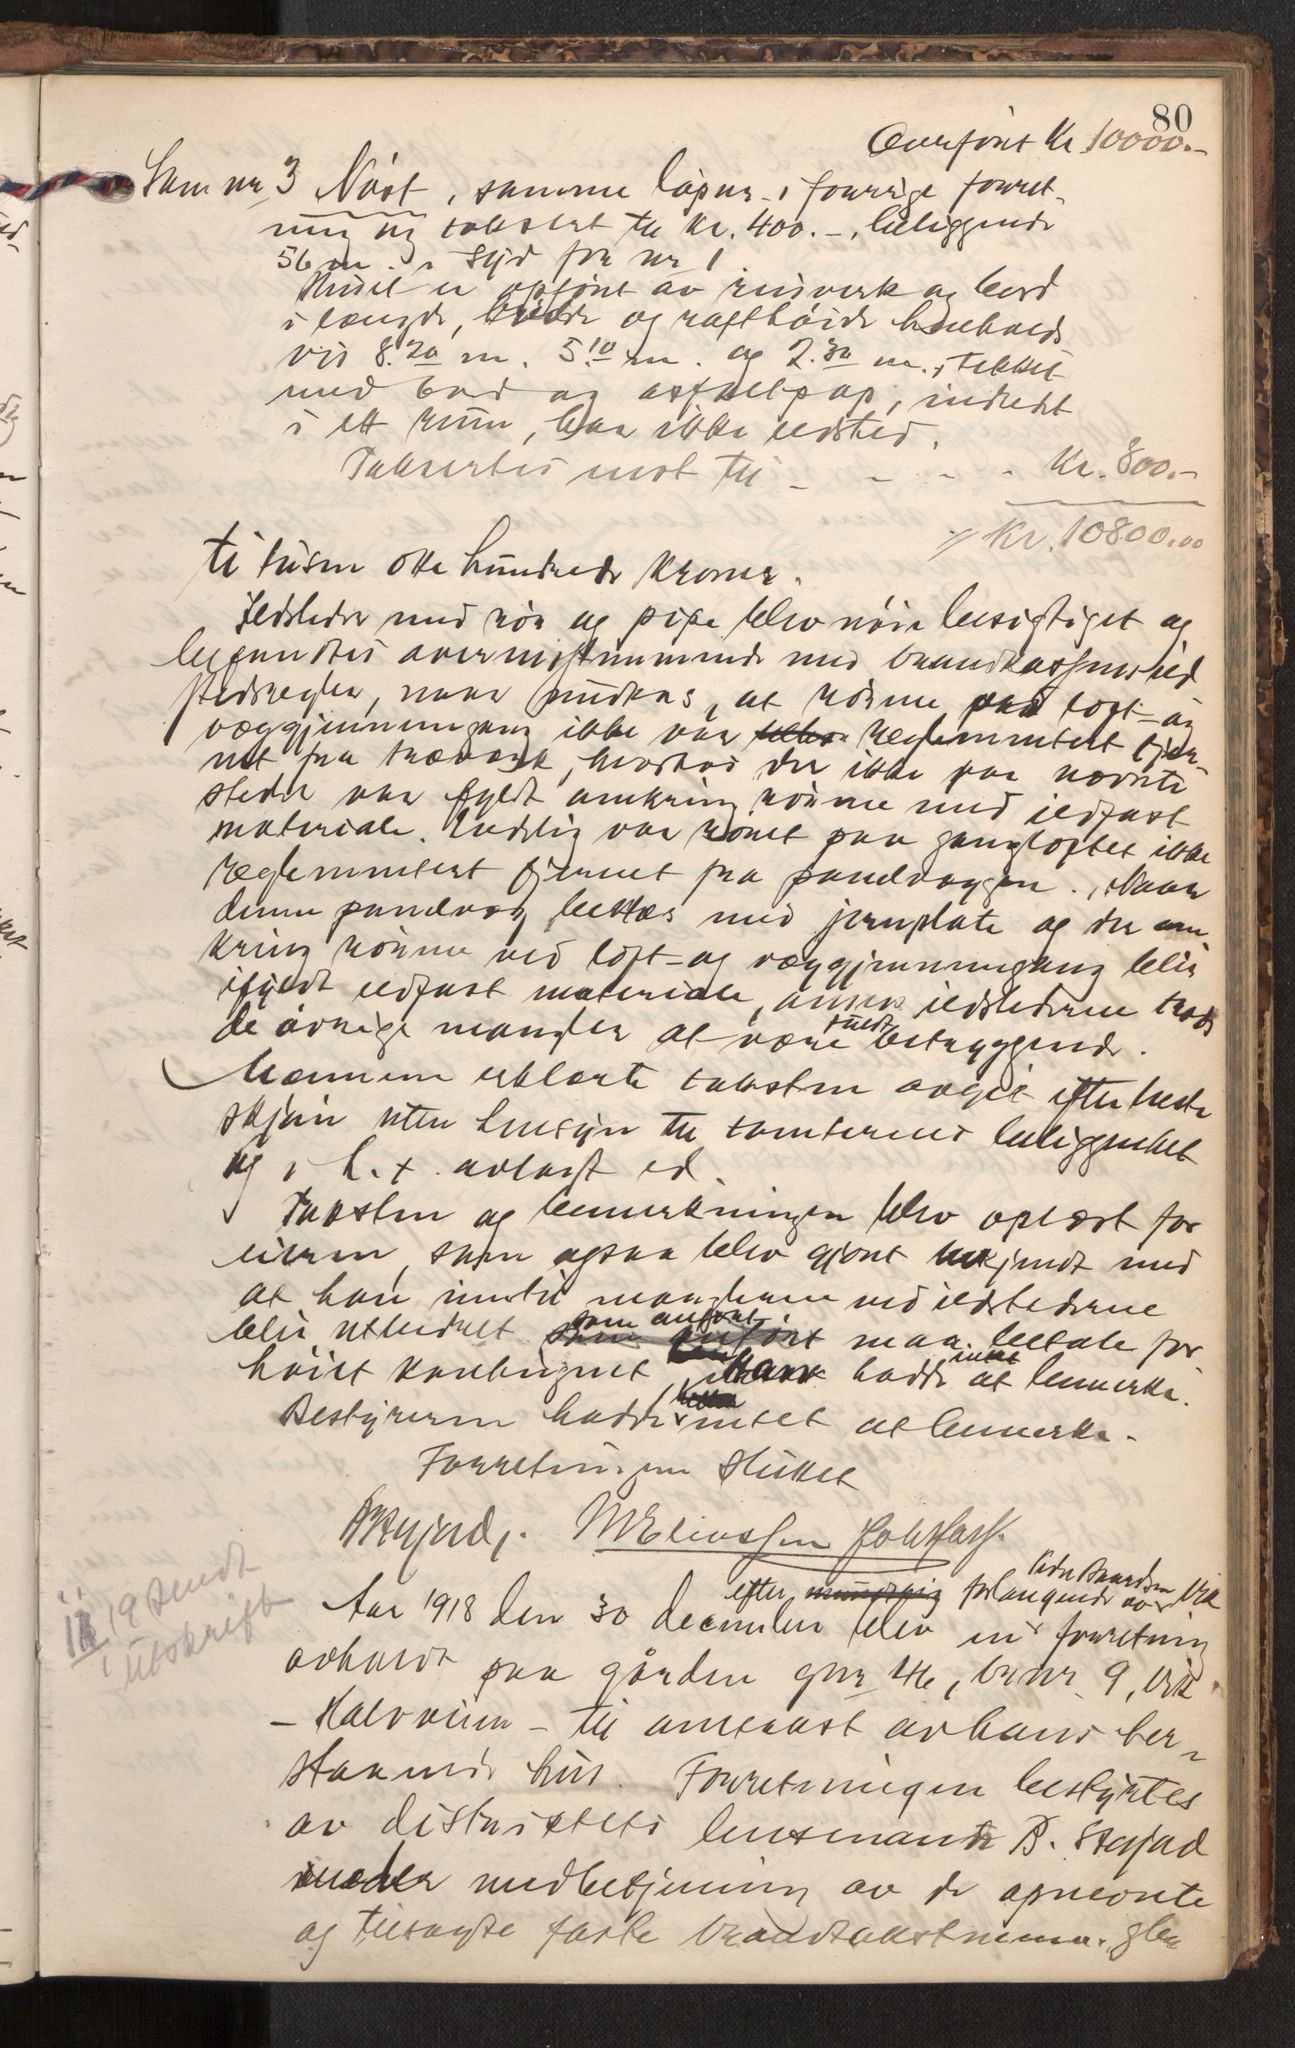 80
Overført Kr 10000.-
Som nr 3 Nøst, samme løpnr. i forrige forret-
ning og taksert til Kr. 400.-, beliggende
56 m. i Syd for nr 1.
Huset er opført av reisverk og bord
i længde, bredde og rafthøide henholds
vis 8.20 m. 5.10 m. og 2.30 m., tækket
med bord og asfaltpap, indredet
i ett rum, har ikke ildsted.
Taksertes nøst til - - - - Kr. 800.-
Kr. 10800.00
ti tusen otte hundrede kroner.
Ildsteder med rør og pipe blev nøie besigtiget og
befandtes overensstemmende med brandkassens ild
stedsregler, naar undtas, at rørene ved loft- og
væggjennemgang ikke var reglementert fjer-
net fra træverk, hvorhos der ikke paa nævnte
steder var fyldt omkring rørene med ildfast
materiale. Endelig var røret paa gangloftet ikke
reglementert fjernet fra panelvæggen. Naar
denne panelvæg beslaaes med jernplate og der om
kring rørene ved loft- og væggjennemgang blir
ifyldt ildfast materiale, ansees ildstederne trods
de øvrige mangler at være fuldt betryggende.
Mænnene erklærte taksten avgit efter bedste
skjøn uten hensyn til tomternes beliggenhet
og i h. t. avlagt ed.
Taksten og bemerkningen blev oplæst for
eieren, som ogsaa blev gjort bekjendt med
at han indtil manglerne ved ildstederne
blir utbedret som anført maa betale for
høiet kontingent. Han hadde intet at bemerke.
Bestyreren hadde intet at bemerke.
Forretningen sluttet
B Skjud. M Eliassen
11/1 19 sendt
utskrift
Aar 1918 den 30 december blev efter forlangende av Vik en forretning
avholdt paa gården gnr 46, brnr. 9, Vik
- Halvveien - til omtakst av hans be-
staaende hus. Forretningen bestyrtes
av distriktets lensmand B. Skjud
under medbetjening av de opnevnte
og tilsagte faste brandtakstmenn